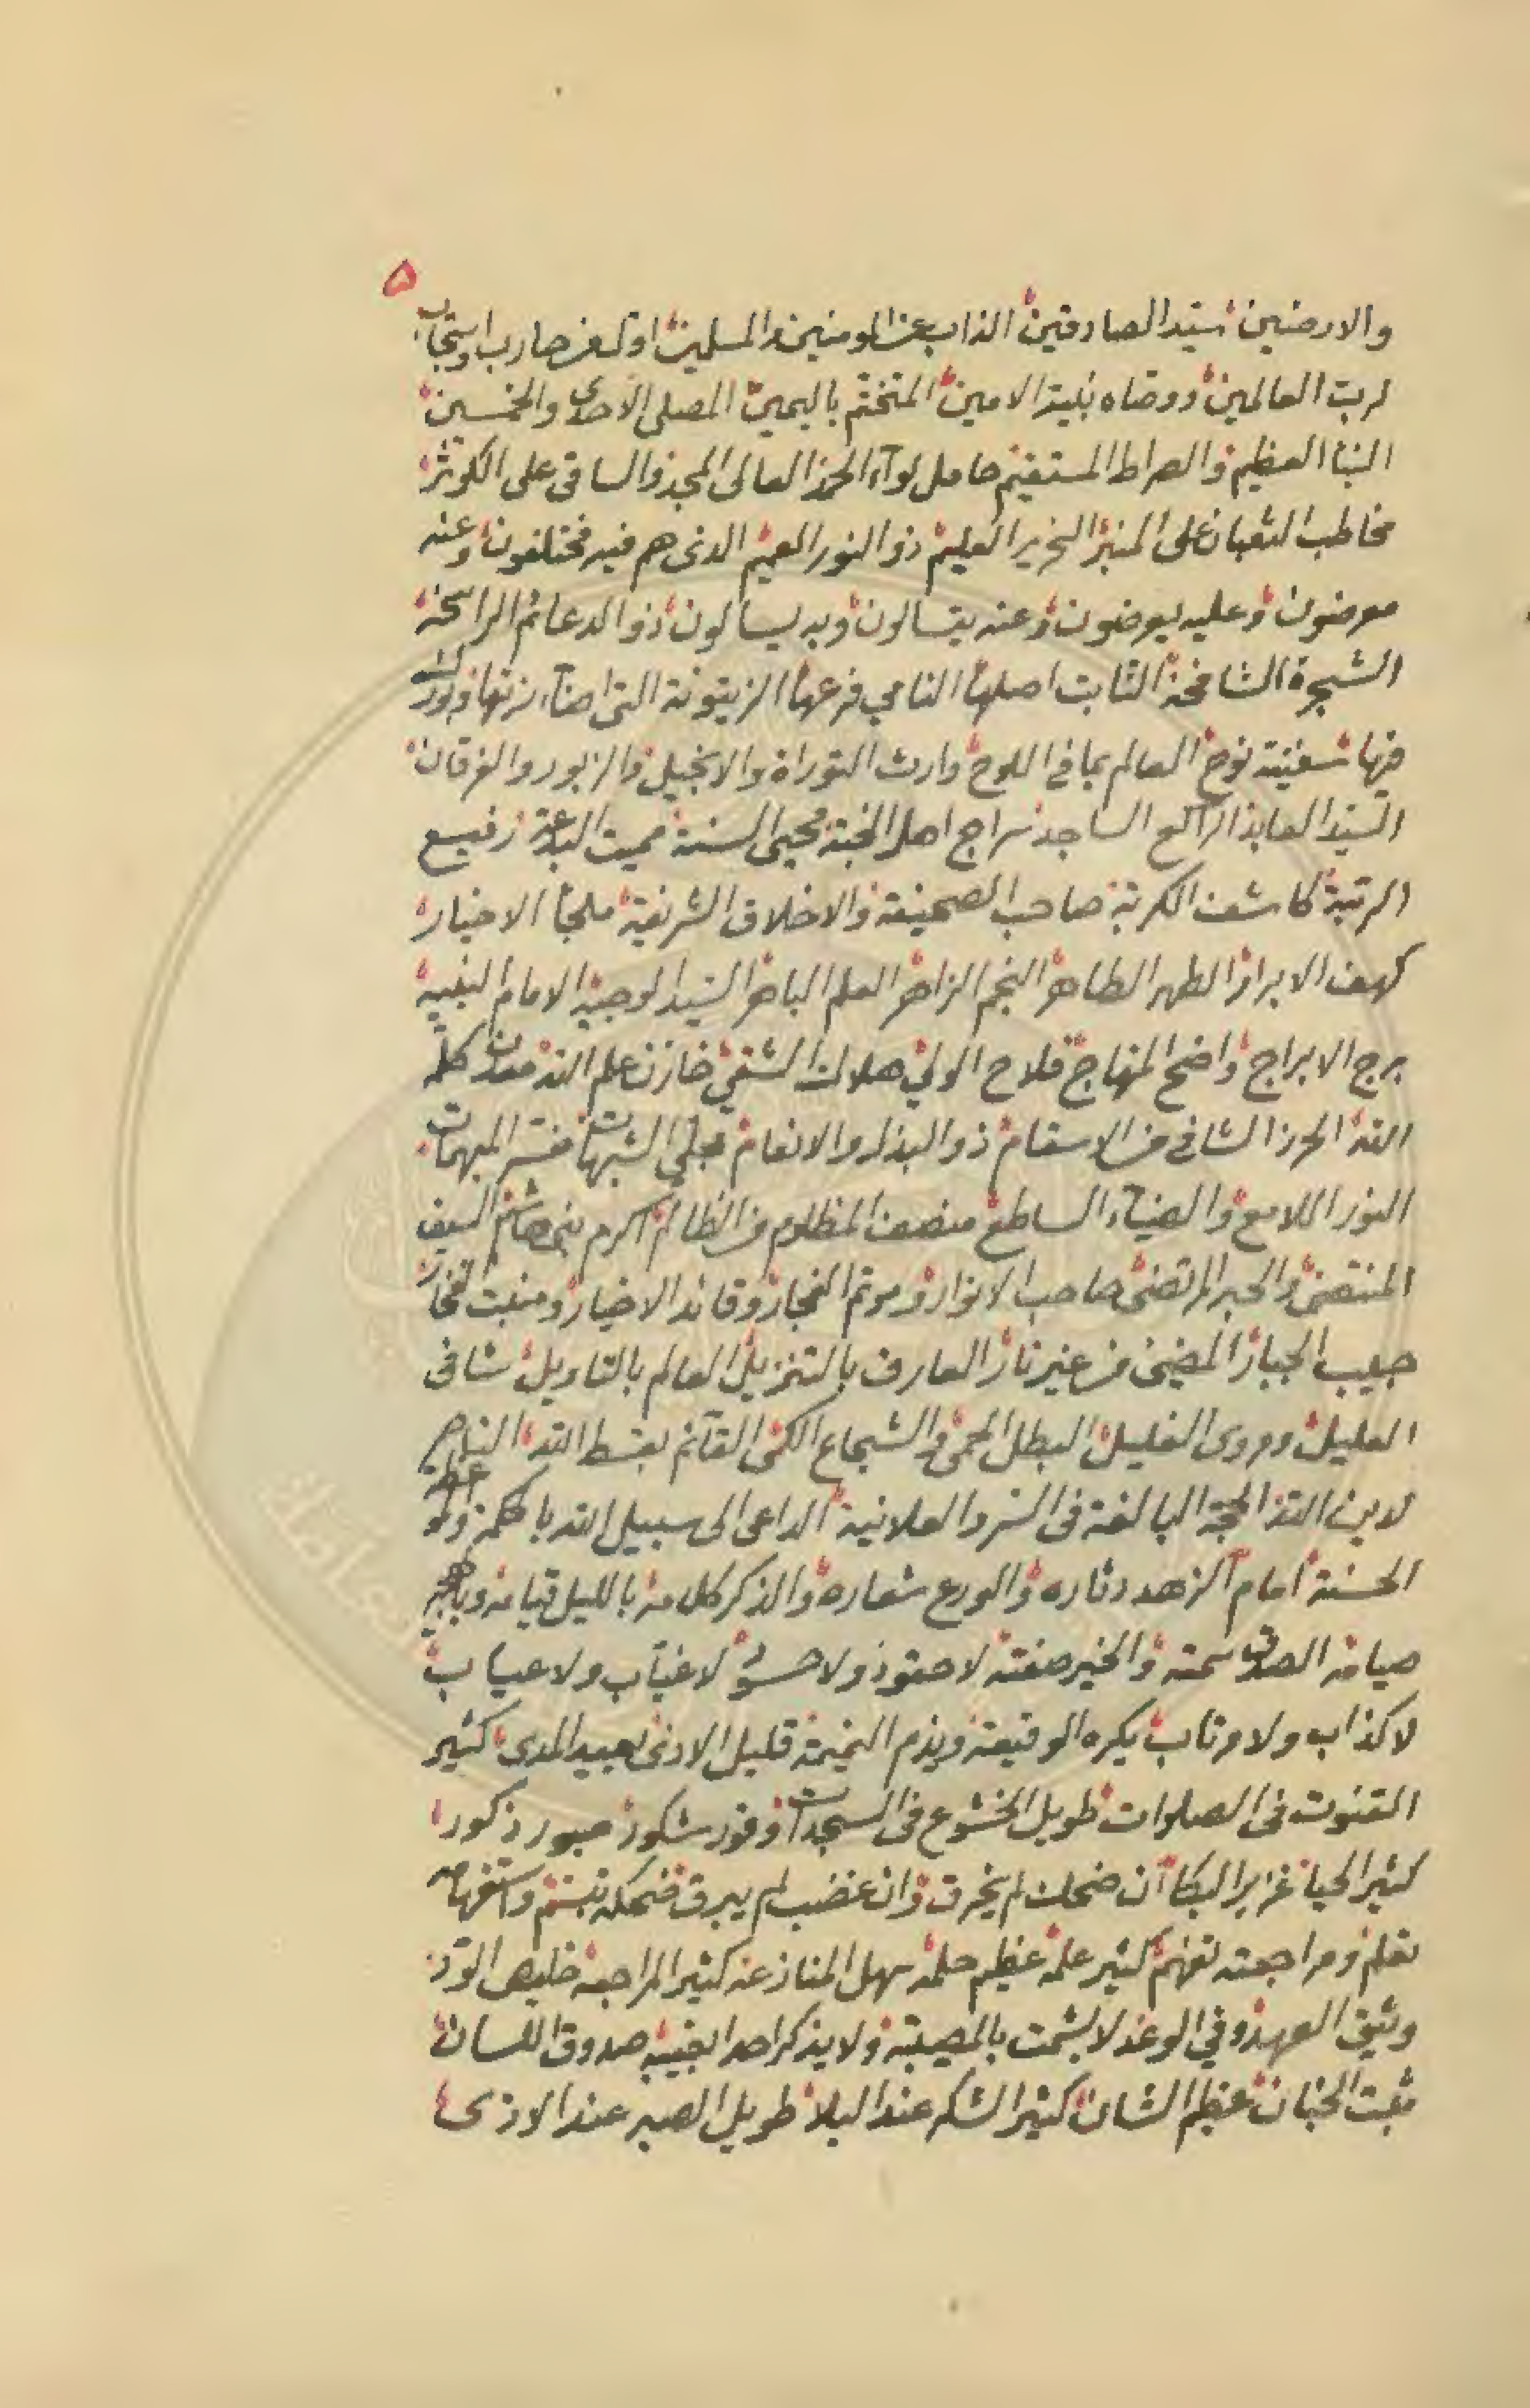 ٥
والارضين سيد الصادقين الذاب عن المومنين والمسلمين اول من حارب واستجاب
لرب العالمين ووصاه نبيه الامين المتختم باليمين المصلى الاحدى والخمسين
النبا العظيم والصراط المستقيم حامل لوآء الحمد العالى المجد والساقى على الكوثر
مخاطب الثعبان على المنبر النحرير العليم ذو النور العميم الذى هم فيه مختلفون وعنه
معرضون وعليه يعرضون وعنه يتسالون وبه يسالون ذو الدعائم الراسخة
الشجرة الشامخة الثابت اصلها النامي فرعها الزيتونة التى اضآء زيتها وبورك
فيها سفينة نوح العالم بما في اللوح وارث التوراة والانجيل والزبور والفرقان
السيد العابد الراكع الساجد سراج اهل الجنة محيى السنة مميت البدعة رفيع
الرتبة كاشف الكربة صاحب الصحيفة والاخلاق الشريفة ملجأ الاخيار
كهف الابرار الطهر الطاهر النجم الزاهر العلم الباهر السيد الوجيه الامام النبيه
برج الابراج واضح المنهاج فلاح الولي هلاك الشقي خازن علم الله معدن كلمة
الله الحرز الشافى من الاسقام ذو البذل والانعام مجلي الشبهات مفسر المبهمات
النور اللامع والضيآء الساطع منصف المظلوم من الظالم اكرم بني هاشم السيف
المنتضى والحبر المرتضى صاحب الانوار وموتم الفجار وقائد الاخيار ومنبت الفخار
حبيب الجبار المضيئ من غير نار العارف بالتنزيل العالم بالتاويل شافى
العليل ومروى الغليل البطل المحمي والشجاع الكمى القآئم بقسط الله الناصر
لدين الله الحجة البالغة فى السر والعلانية الداعى الى سبيل الله بالحكمة والموعظة
الحسنة امام الزهد دثاره والورع شعاره والذكر كلامه بالليل قيامه وبالهجير
صيامه الصدق سمته والخير صفته لا حقود ولا حسود لا غيّاب ولا عياب
لا كذاب ولا مرتاب يكره الوقيعة ويذم النميمة قليل الاذى بعيد المدى كثير
القنوت فى الصلوات طويل الخشوع فى السجدات وقور شكور صبور ذكور
كثير الحيا غزير البكا ان ضحك لم يخرق وان غضب لم يبرق ضحكه تبسم واستفهامه
تعلم ومراجعته تفهم كثير علمه عظيم حلمه سهل المنازعه كثير المراجعة خليص الود
وثيق العهد وفي الوعد لا يشمت بالمصيبة ولا يذكر احدا بغيبه صدوق اللسان
مثبت الجنان عظيم الشان كثير الشكر عند البلا طويل الصبر عند الاذى